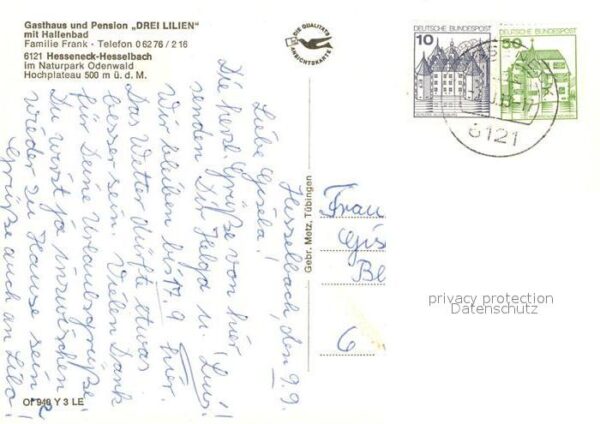 Gasthaus und Pension „DREI LILIEN"
mit Hallenbad
Familie Frank - Telefon 0 62 76 / 2 16
6121 Hesseneck-Hesselbach
im Naturpark Odenwald
Hochplateau 500 m ü. d. M.
DIE QUALITÄTS
ANSICHTSKARTE
10
DEUTSCHE BUNDESPOST
50
DEUTSCHE BUNDESPOST
6121
Hesselbach, den 9.9.
Liebe Gisela!
Die herzl. Grüße von hier
senden Dir Helga u.
Wir bleiben bis 17.9 hier.
Das Wetter dürfte etwas
besser sein. Vielen Dank
für Deine Urlaubsgrüße!
Du wirst ja inzwischen
wieder zu Hause sein
Grüße auch an Lilo!
Gebr. Metz, Tübingen
Frau
Gis
Be
6
privacy protection
Datenschutz
Of 948 Y 3 LE